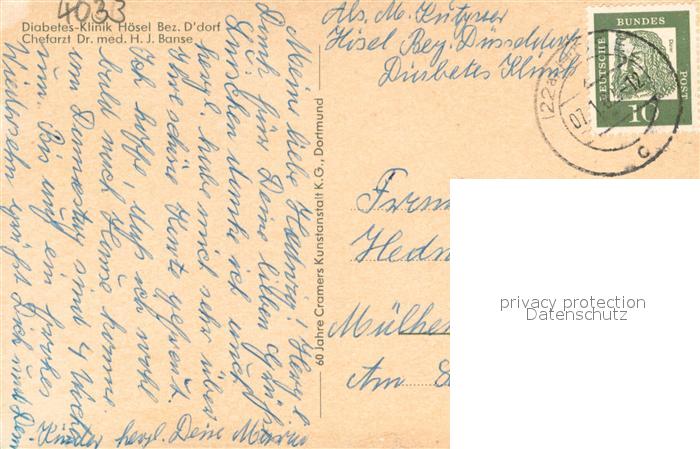 4033
Diabetes-Klinik Hösel Bez. D'dorf
Chefarzt Dr. med. H. J. Banse
Abs. M. Kutzner
Hösel Bez. Düsseldorf
Diabetes Klinik
DEUTSCHE BUNDESPOST
10
(22a)
c
Meine liebe Hedwig! Herzl.
Dank für Deine lieben Grüße
danke ich
herzl. habe mich sehr über
Ihre schöne Karte gefreut.
Ich hoffe, daß ich wohl
bald nach Hause komme.
am Donnerstag sind 4 Wochen
um. Bis auf ein frohes
Wiedersehn grüßt Dich und Deine
Kinder herzl. Deine Maria
60 Jahre Cramers Kunstanstalt K.G., Dortmund
Hedw
Mülhe
Am
privacy protection
Datenschutz